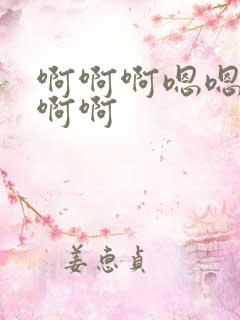 啊啊啊嗯嗯
啊啊
姜恵贞